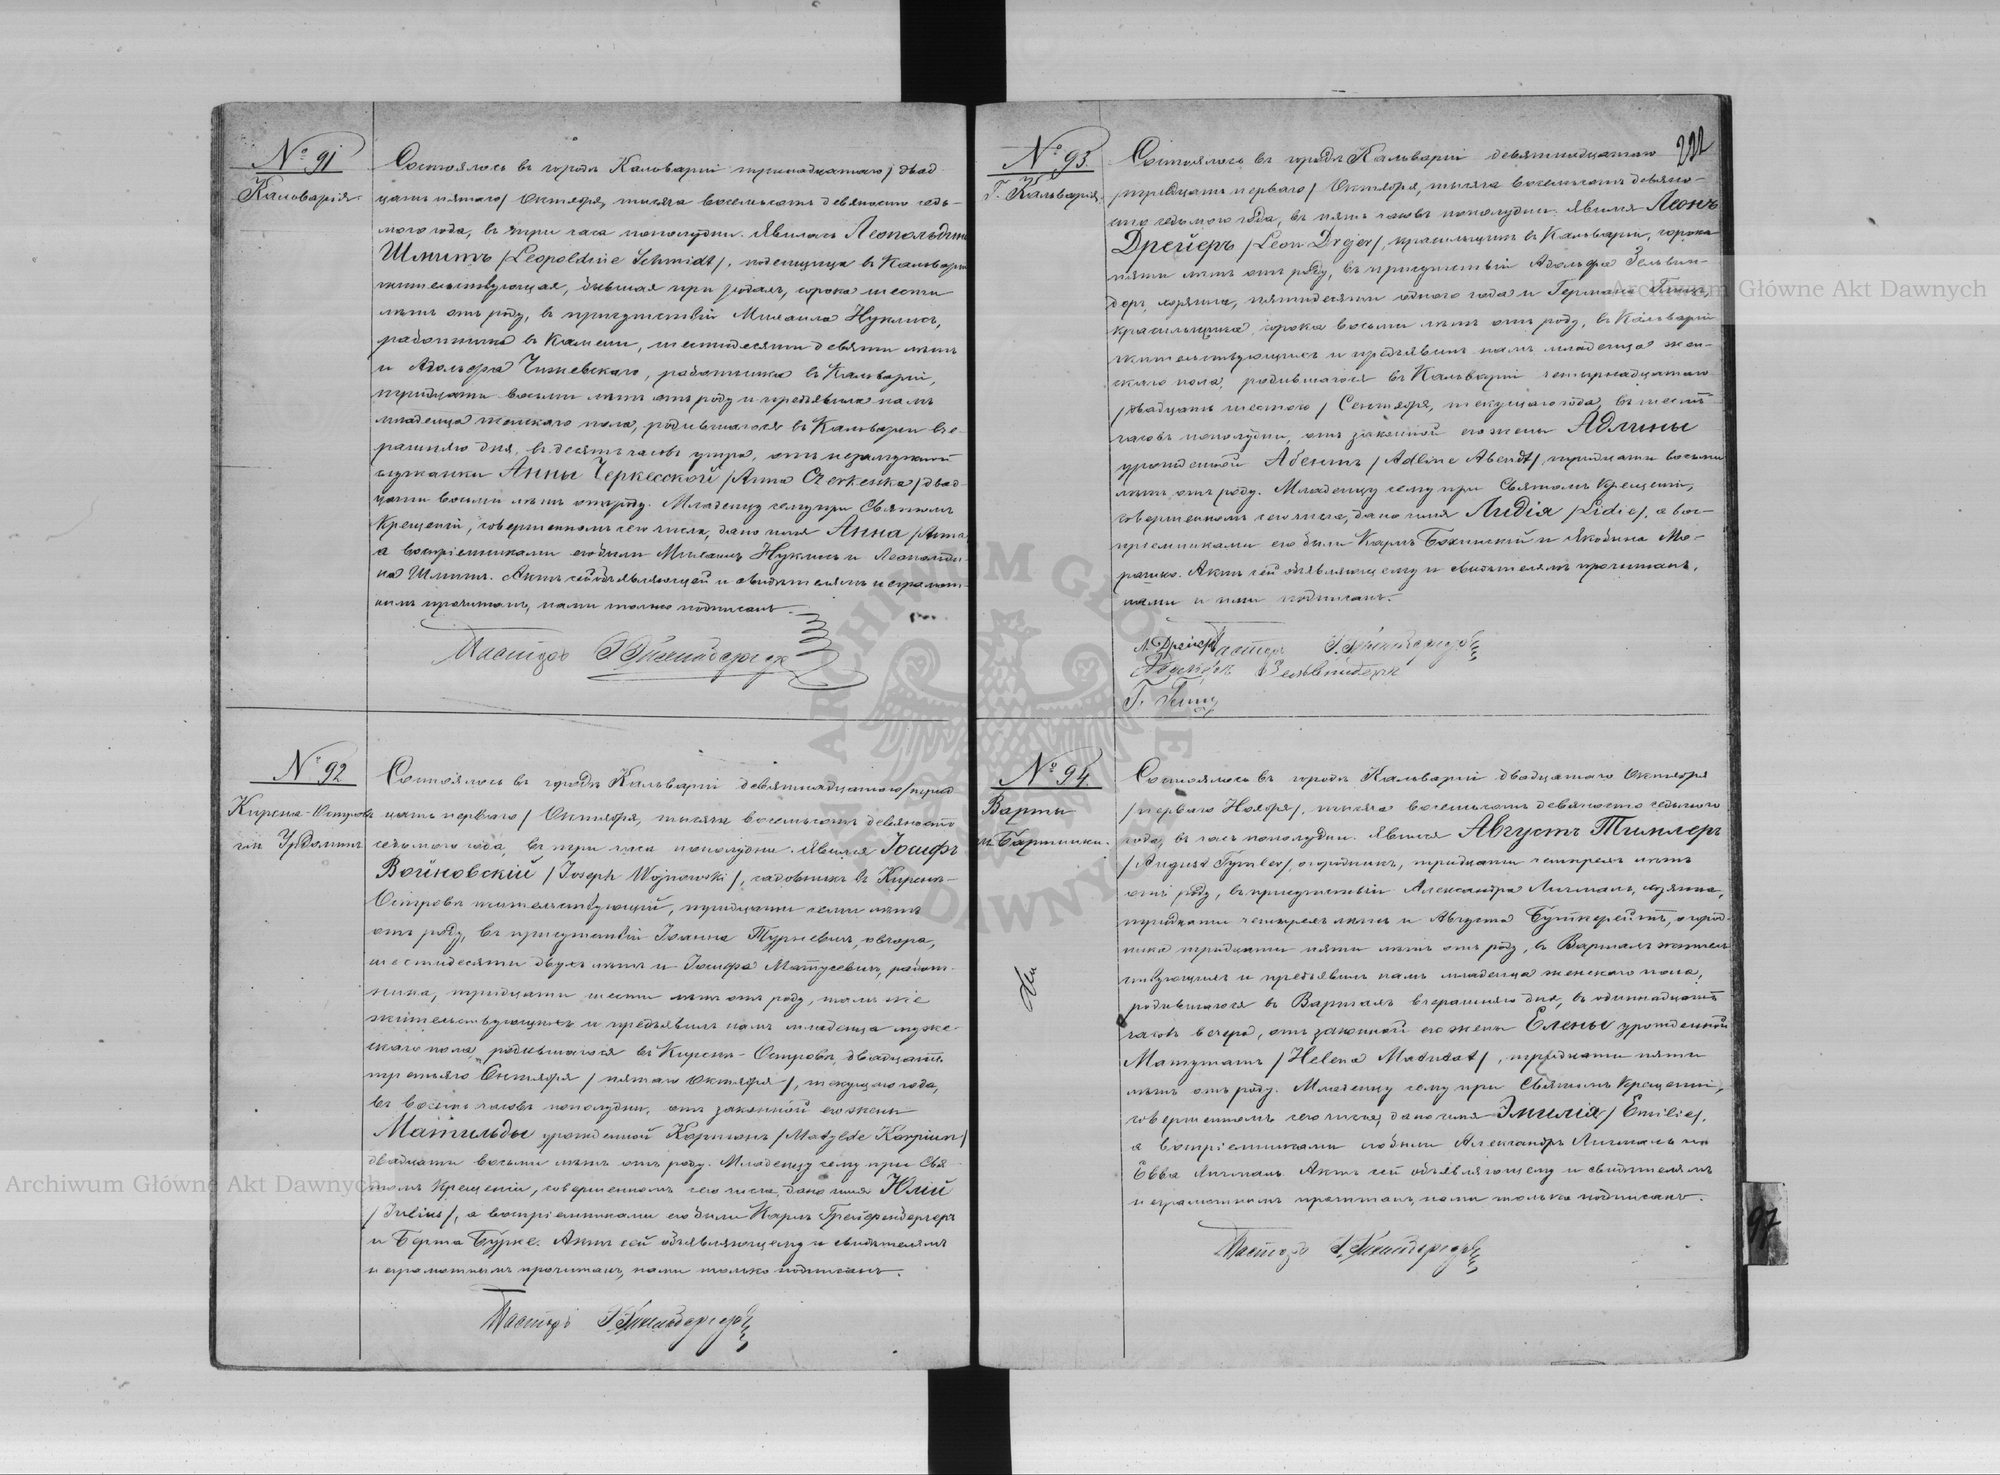 № 91
Кальварія.
Состоялось въ городѣ Кальваріи тринадцатаго / двад-
цать пятаго / Октября, тысяча восемьсотъ девяносто седь-
мого года, въ три часа пополудни. Явилась Леопольдина
Шмитъ /Leopoldine Schmidt/, поденщица въ Кальваріи
жительствующая, бывшая при родахъ, сорока шести
лѣтъ отъ роду, въ присутствіи Михаила Нуклисъ,
работника въ Камени, шестидесяти девяти лѣтъ
и Адольфа Чижевскаго, работника въ Кальваріи,
тридцати восьми лѣтъ отъ роду и предъявила намъ
младенца женскаго пола, родившагося въ Кальваріи вче-
рашняго дня, въ десять часовъ утра, отъ незамужной
служанки Анны Черкесской /Anna Czerkeska/ двад-
цати восьми лѣтъ отъ роду. Младенцу сему при Святомъ
Крещеніи, совершенномъ сего числа, дано имя Анна /Anna/
а воспріемниками его были Михаилъ Нуклисъ и Леопольди-
на Шмитъ. Актъ сей объявляющей и свидѣтелямъ неграмот-
нымъ прочитанъ, нами только подписанъ.
Пасторъ
№ 92
Кирсна-Островъ
гм. Урдоминъ
Состоялось въ городѣ Кальваріи девятнадцатаго / трид-
цать перваго / Октября, тысяча восемьсотъ девяносто
седьмого года, въ три часа пополудни. Явился Іосифъ
Войновскій /Joseph Wojnowski/, садовникъ въ Кирснѣ-
Островѣ жительствующій, тридцати семи лѣтъ
отъ роду, въ присутствіи Іоанна Турневичъ, овчара,
шестидесяти двухъ лѣтъ и Іосифа Матусевичъ, работ-
ника, тридцати шести лѣтъ отъ роду, тамъ же
жительствующихъ и предъявилъ намъ младенца муже-
скаго пола, родившагося въ Кирснѣ-Островѣ, двадцать
третьяго Сентября / пятаго Октября /, текущаго года,
въ восемь часовъ пополудни, отъ законной его жены
Матильды урожденной Корпюнъ /Matylde Korpiun/
двадцати восьми лѣтъ отъ роду. Младенцу сему при Свя-
томъ Крещеніи, совершенномъ сего числа, дано имя Юлій
/Julius/, а воспріемниками его были Карлъ Грейфенбергеръ
и Берта Бурке. Актъ сей объявляющему и свидѣтелямъ
неграмотнымъ прочитанъ, нами только подписанъ.
Пасторъ
222
№ 93.
Г. Кальварія.
Состоялось въ городѣ Кальваріи девятнадцатаго
/тридцать перваго/ Октября, тысяча восемьсотъ девяно-
сто седьмого года, въ пять часовъ пополудни. Явился Леонъ
Дрейеръ /Leon Drejer/, красильщикъ въ Кальваріи, сорока
пяти лѣтъ отъ роду, въ присутствіи Адольфа Зельвин-
деръ, столяра, пятидесяти одного года и Германа
красильщика, сорока восьми лѣтъ отъ роду, въ Кальваріи
жительствующихъ и предъявилъ намъ младенца жен-
скаго пола, родившагося въ Кальваріи четырнадцатаго
/двадцать шестого/ Сентября, текущаго года, въ шесть
часовъ пополудни, отъ законной его жены Адлины
урожденной Абентъ /Adline Abendt/, тридцати восьми
лѣтъ отъ роду. Младенцу сему при Святомъ Крещеніи,
совершенномъ сего числа, дано имя Лидія /Lidie/, а вос-
пріемниками его были Карлъ Бохинскій и Якобина Мо-
Актъ сей объявляющему и свидѣтелямъ прочитанъ,
нами и ими подписанъ.
Л. Дрейеръ Пасторъ
Г.
№ 94.
Варты
гм. Бартники.
Состоялось въ городѣ Кальваріи двадцатаго Октября
/перваго Ноября/, тысяча восемьсотъ девяносто седьмого
года, въ часъ пополудни. Явился Августъ Тимлеръ
/August Tymler/, огородникъ, тридцати четырехъ лѣтъ
отъ роду, въ присутствіи Александра Личмалъ, хозяина,
тридцати четырехъ лѣтъ и Августа Буткерейтъ, огород-
ника тридцати пяти лѣтъ отъ роду, въ Вартахъ житель-
ствующихъ и предъявилъ намъ младенца женскаго пола,
родившагося въ Вартахъ вчерашняго дня, въ одиннадцать
часовъ вечера, отъ законной его жены Елены урожденной
Матутатъ /Helena Matutat/, тридцати пяти
лѣтъ отъ роду. Младенцу сему при Святомъ Крещеніи,
совершенномъ сего числа, дано имя Эмилія /Emilie/,
а воспріемниками его были Александръ Личмалъ и
Евва Личмалъ. Актъ сей объявляющему и свидѣтелямъ
неграмотнымъ прочитанъ, нами только подписанъ.
Пасторъ
97
Archiwum Główne Akt Dawnych
Archiwum Główne Akt Dawnych
ARCHIWUM GŁÓWNE
AKT DAWNYCH